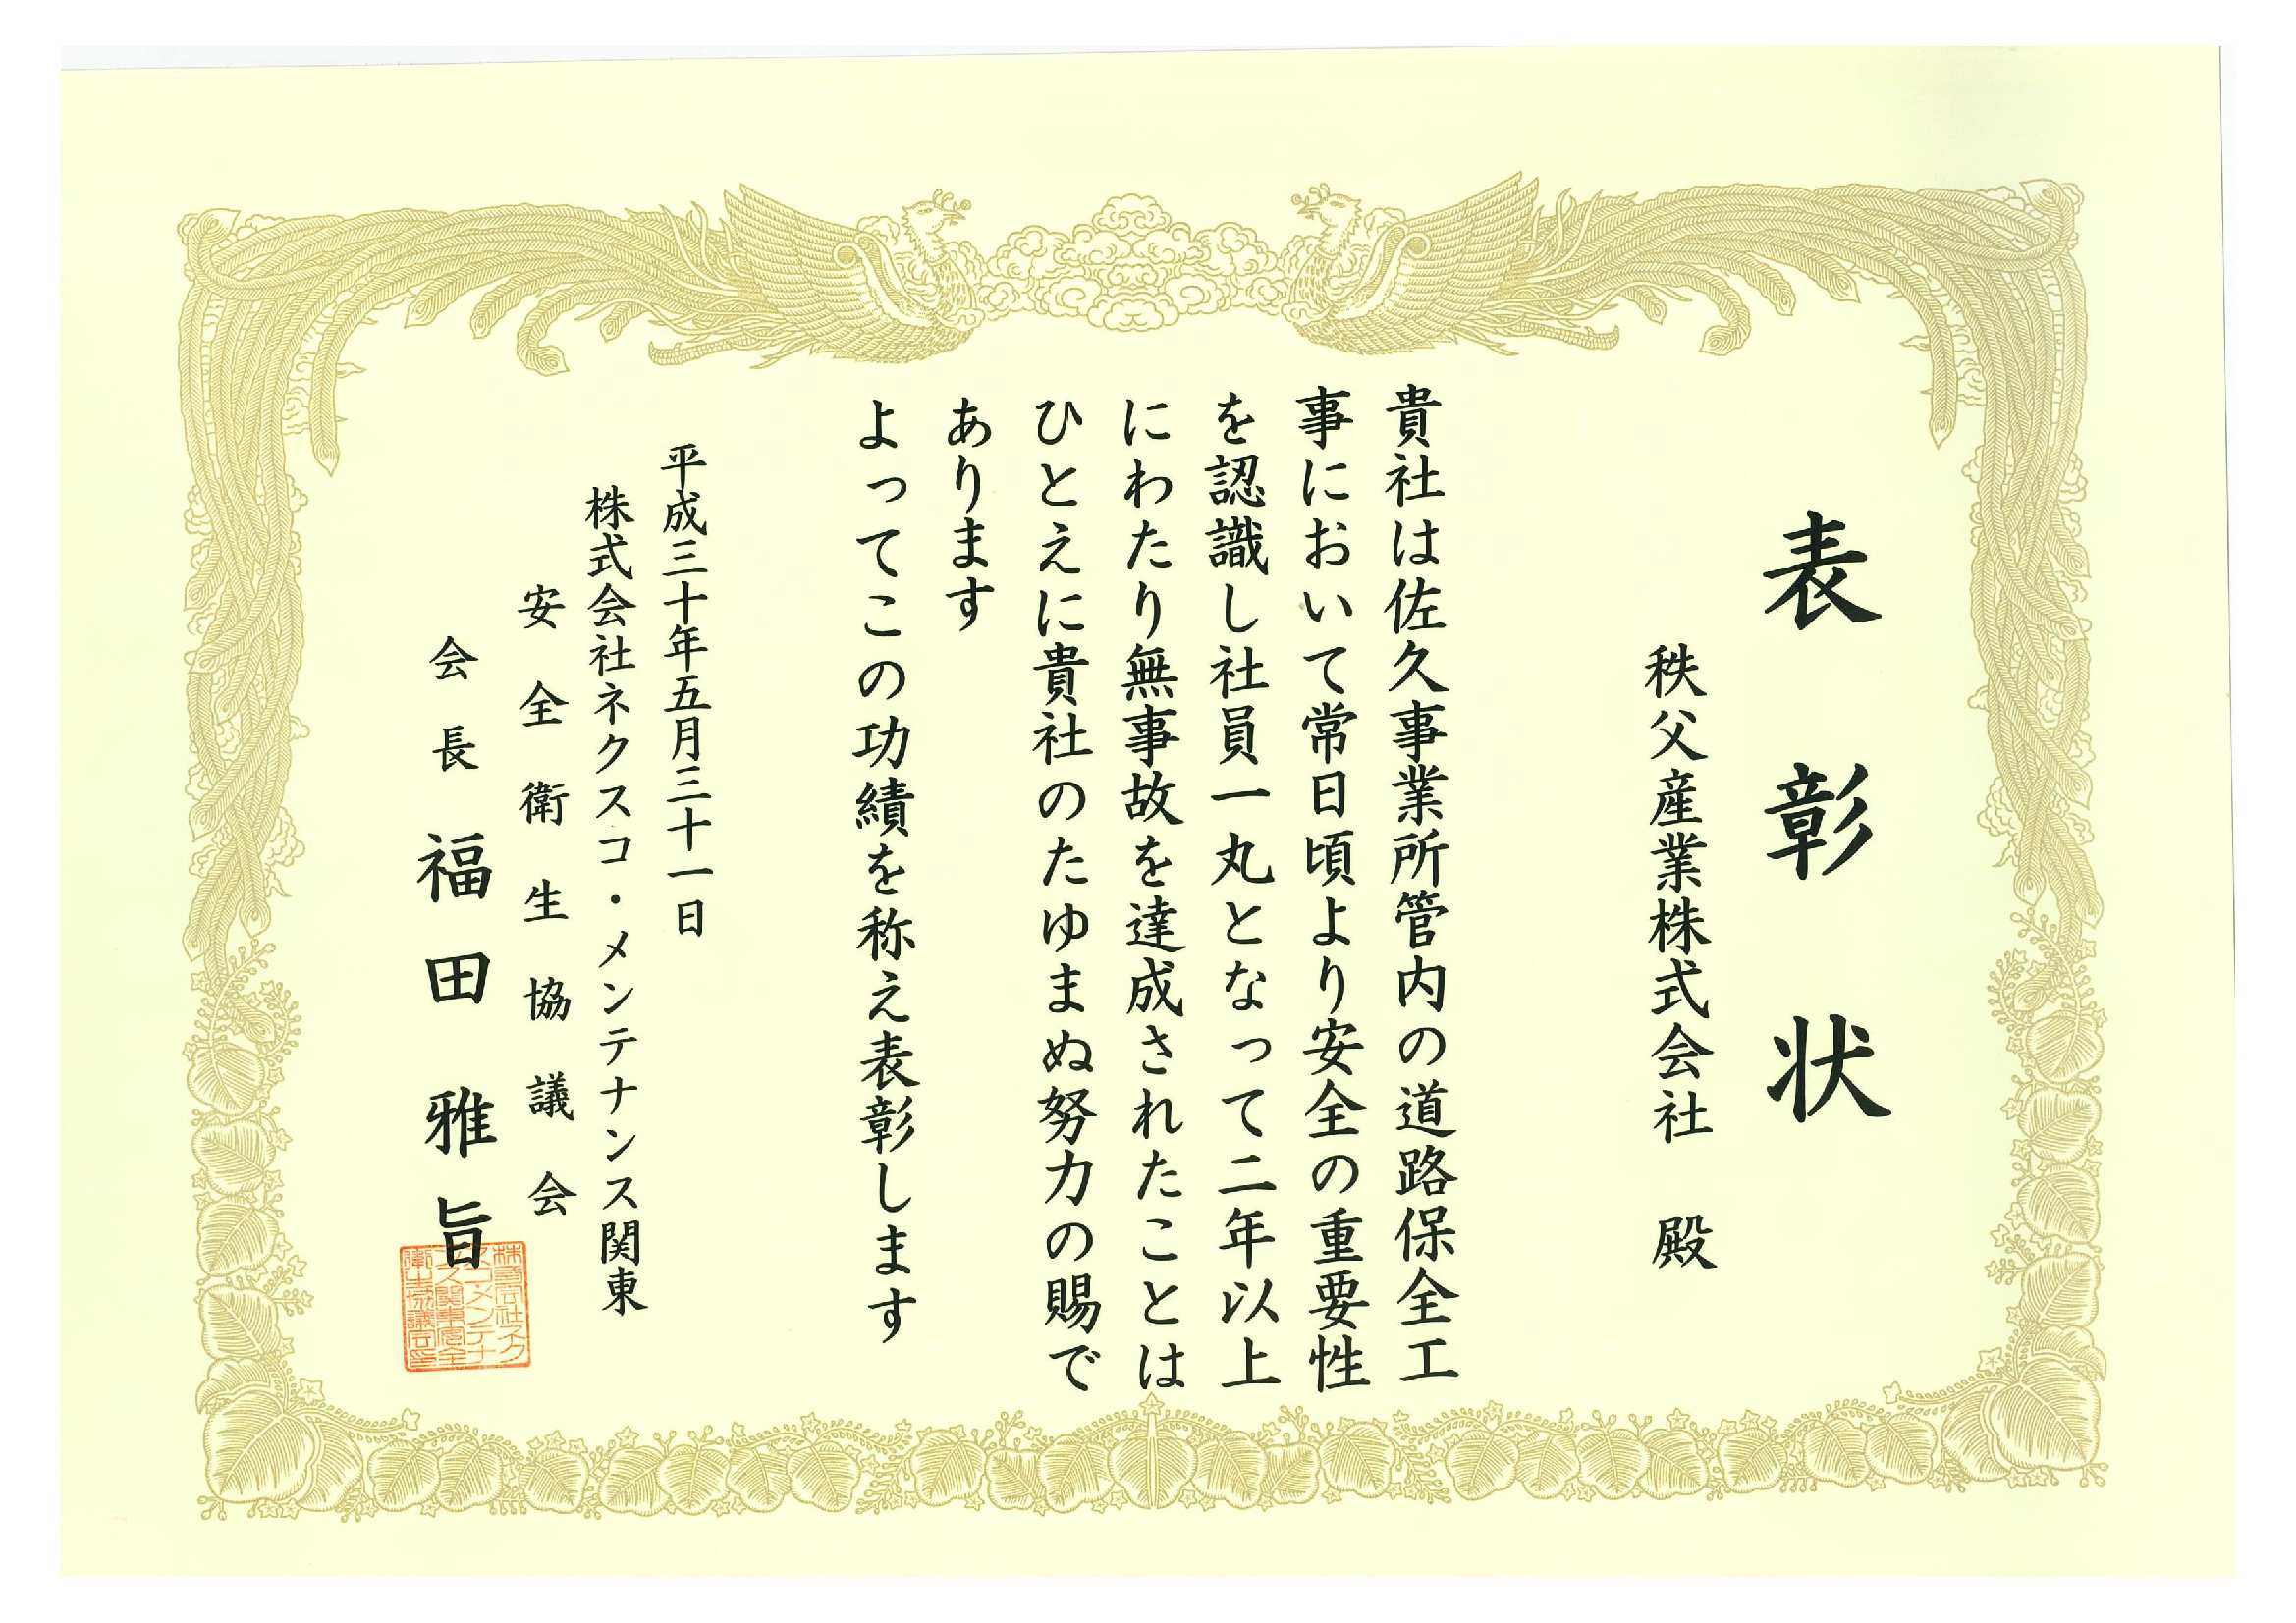 表彰状
秩父産業株式会社 殿
貴社は佐久事業所管内の道路保全工
事において常日頃より安全の重要性
を認識し社員一丸となって二年以上
にわたり無事故を達成されたことは
ひとえに貴社のたゆまぬ努力の賜で
あります
よってこの功績を称え表彰します
平成三十年五月三十一日
株式会社ネクスコ・メンテナンス関東
安全衛生協議会
会長 福田雅旨
株式会社ネク
スコ・メンテナ
ンス関東安全
衛生協議会印